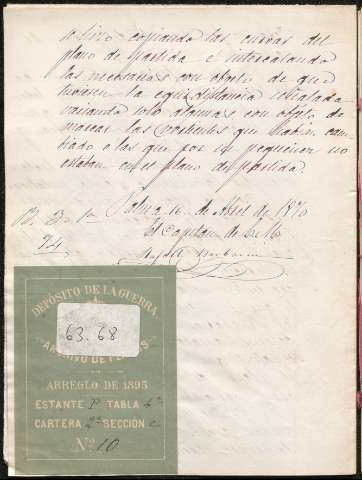 se hizo copiando las curvas del
plano de partida é intercalando
las necesarias con objeto de que
tuviesen la equidistancia
variando solo algunas con objeto de
marcar las vertientes que habian cam
biado o las que por su pequeñez no
estaban en el plano de partida.
Palma 16 de Abril de 1870
El Capitan de E. M.
Rafael
DEPÓSITO DE LA GUERRA
63-68
ARCHIVO DE PLANOS
ARREGLO DE 1895
ESTANTE P TABLA 4ª
CARTERA 2ª SECCIÓN C
Nº 10